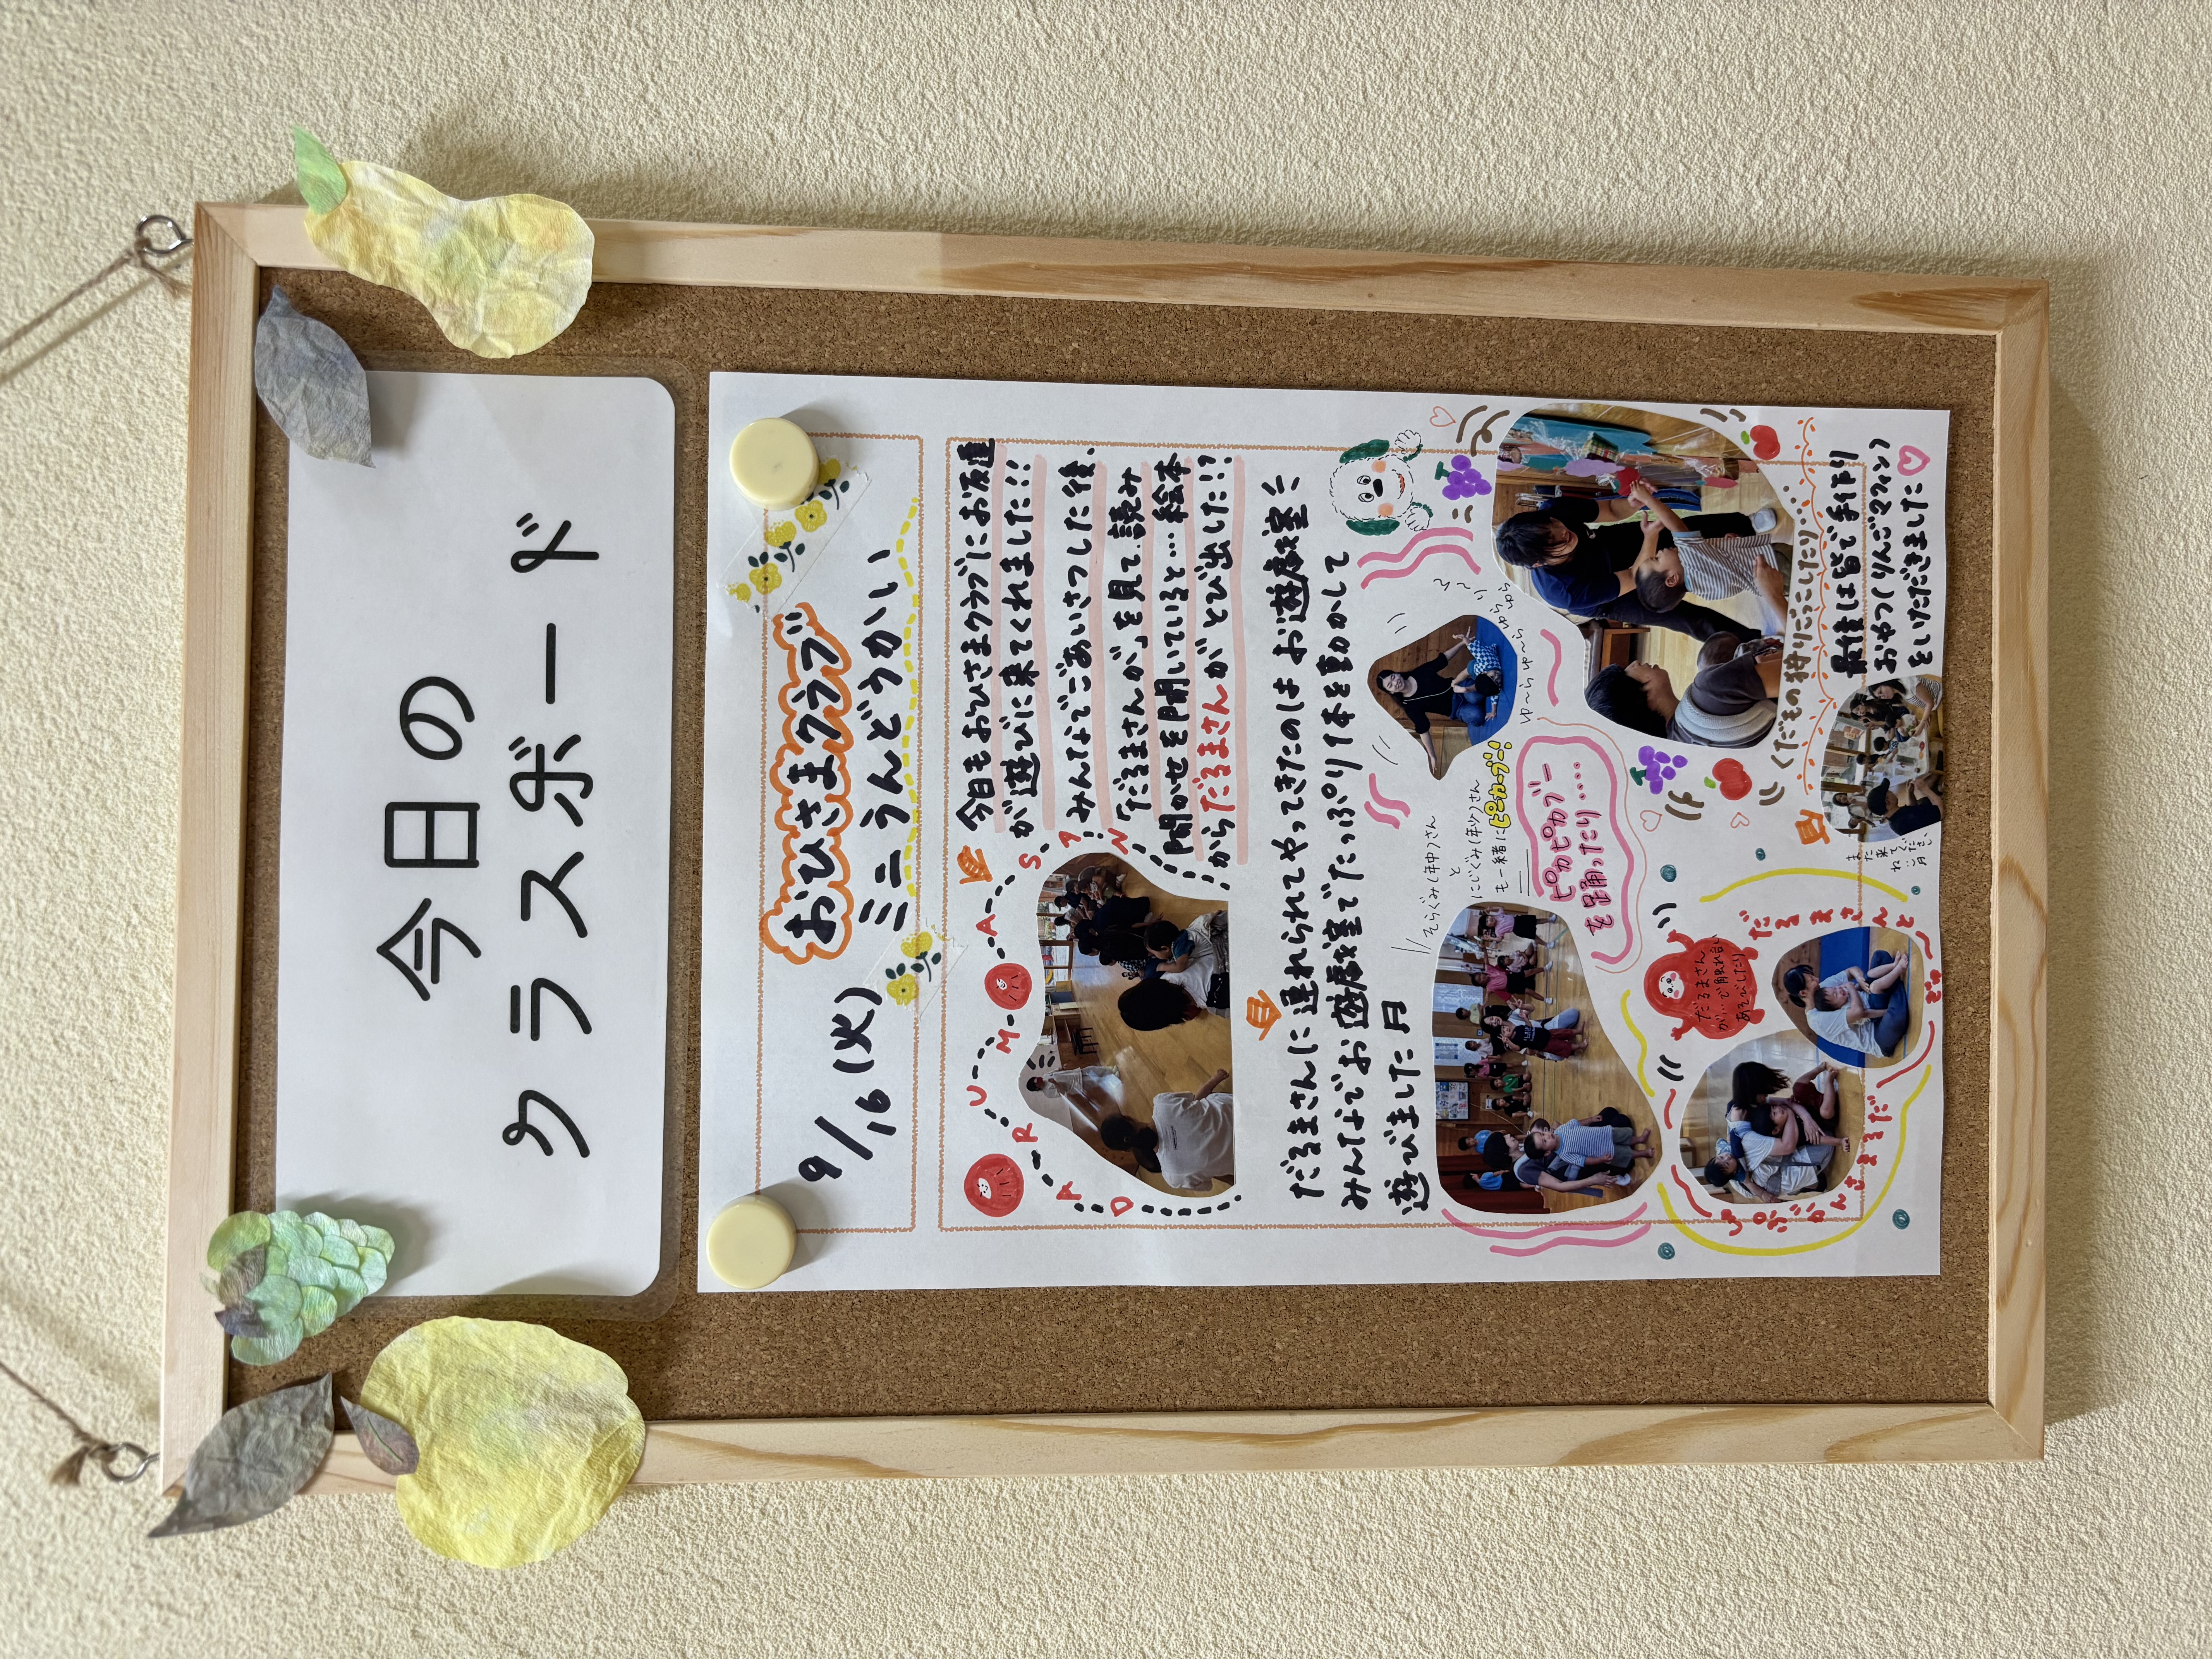 今日の
クラスボード
9/16(火)
おひさまクラブ
ミニうんどうかい
DARUMASAN
今日もおひさまクラブにお友達
が遊びに来てくれました!!
みんなでごあいさつした後、
「だるまさんが」を見て、読み
聞かせを聞いていると…絵本
からだるまさんがとび出した!?
だるまさんに連れられてやってきたのはお遊戯室
みんなでお遊戯室でたっぷり体を動かして
遊びました
そらぐみ(年中)さん
と
にじぐみ(年少)さん
も一緒に
ピカブー!
ピカピカブー
を踊ったり……
ゆ〜らゆ〜らゆらゆら
くだもの狩りごっこしたり…
だるまさん
が…で触れ合い
あそびしたり
だるまさんと
最後は皆で手作り
おやつ(りんごマフィン)
をいただきました
また来
てくださいね